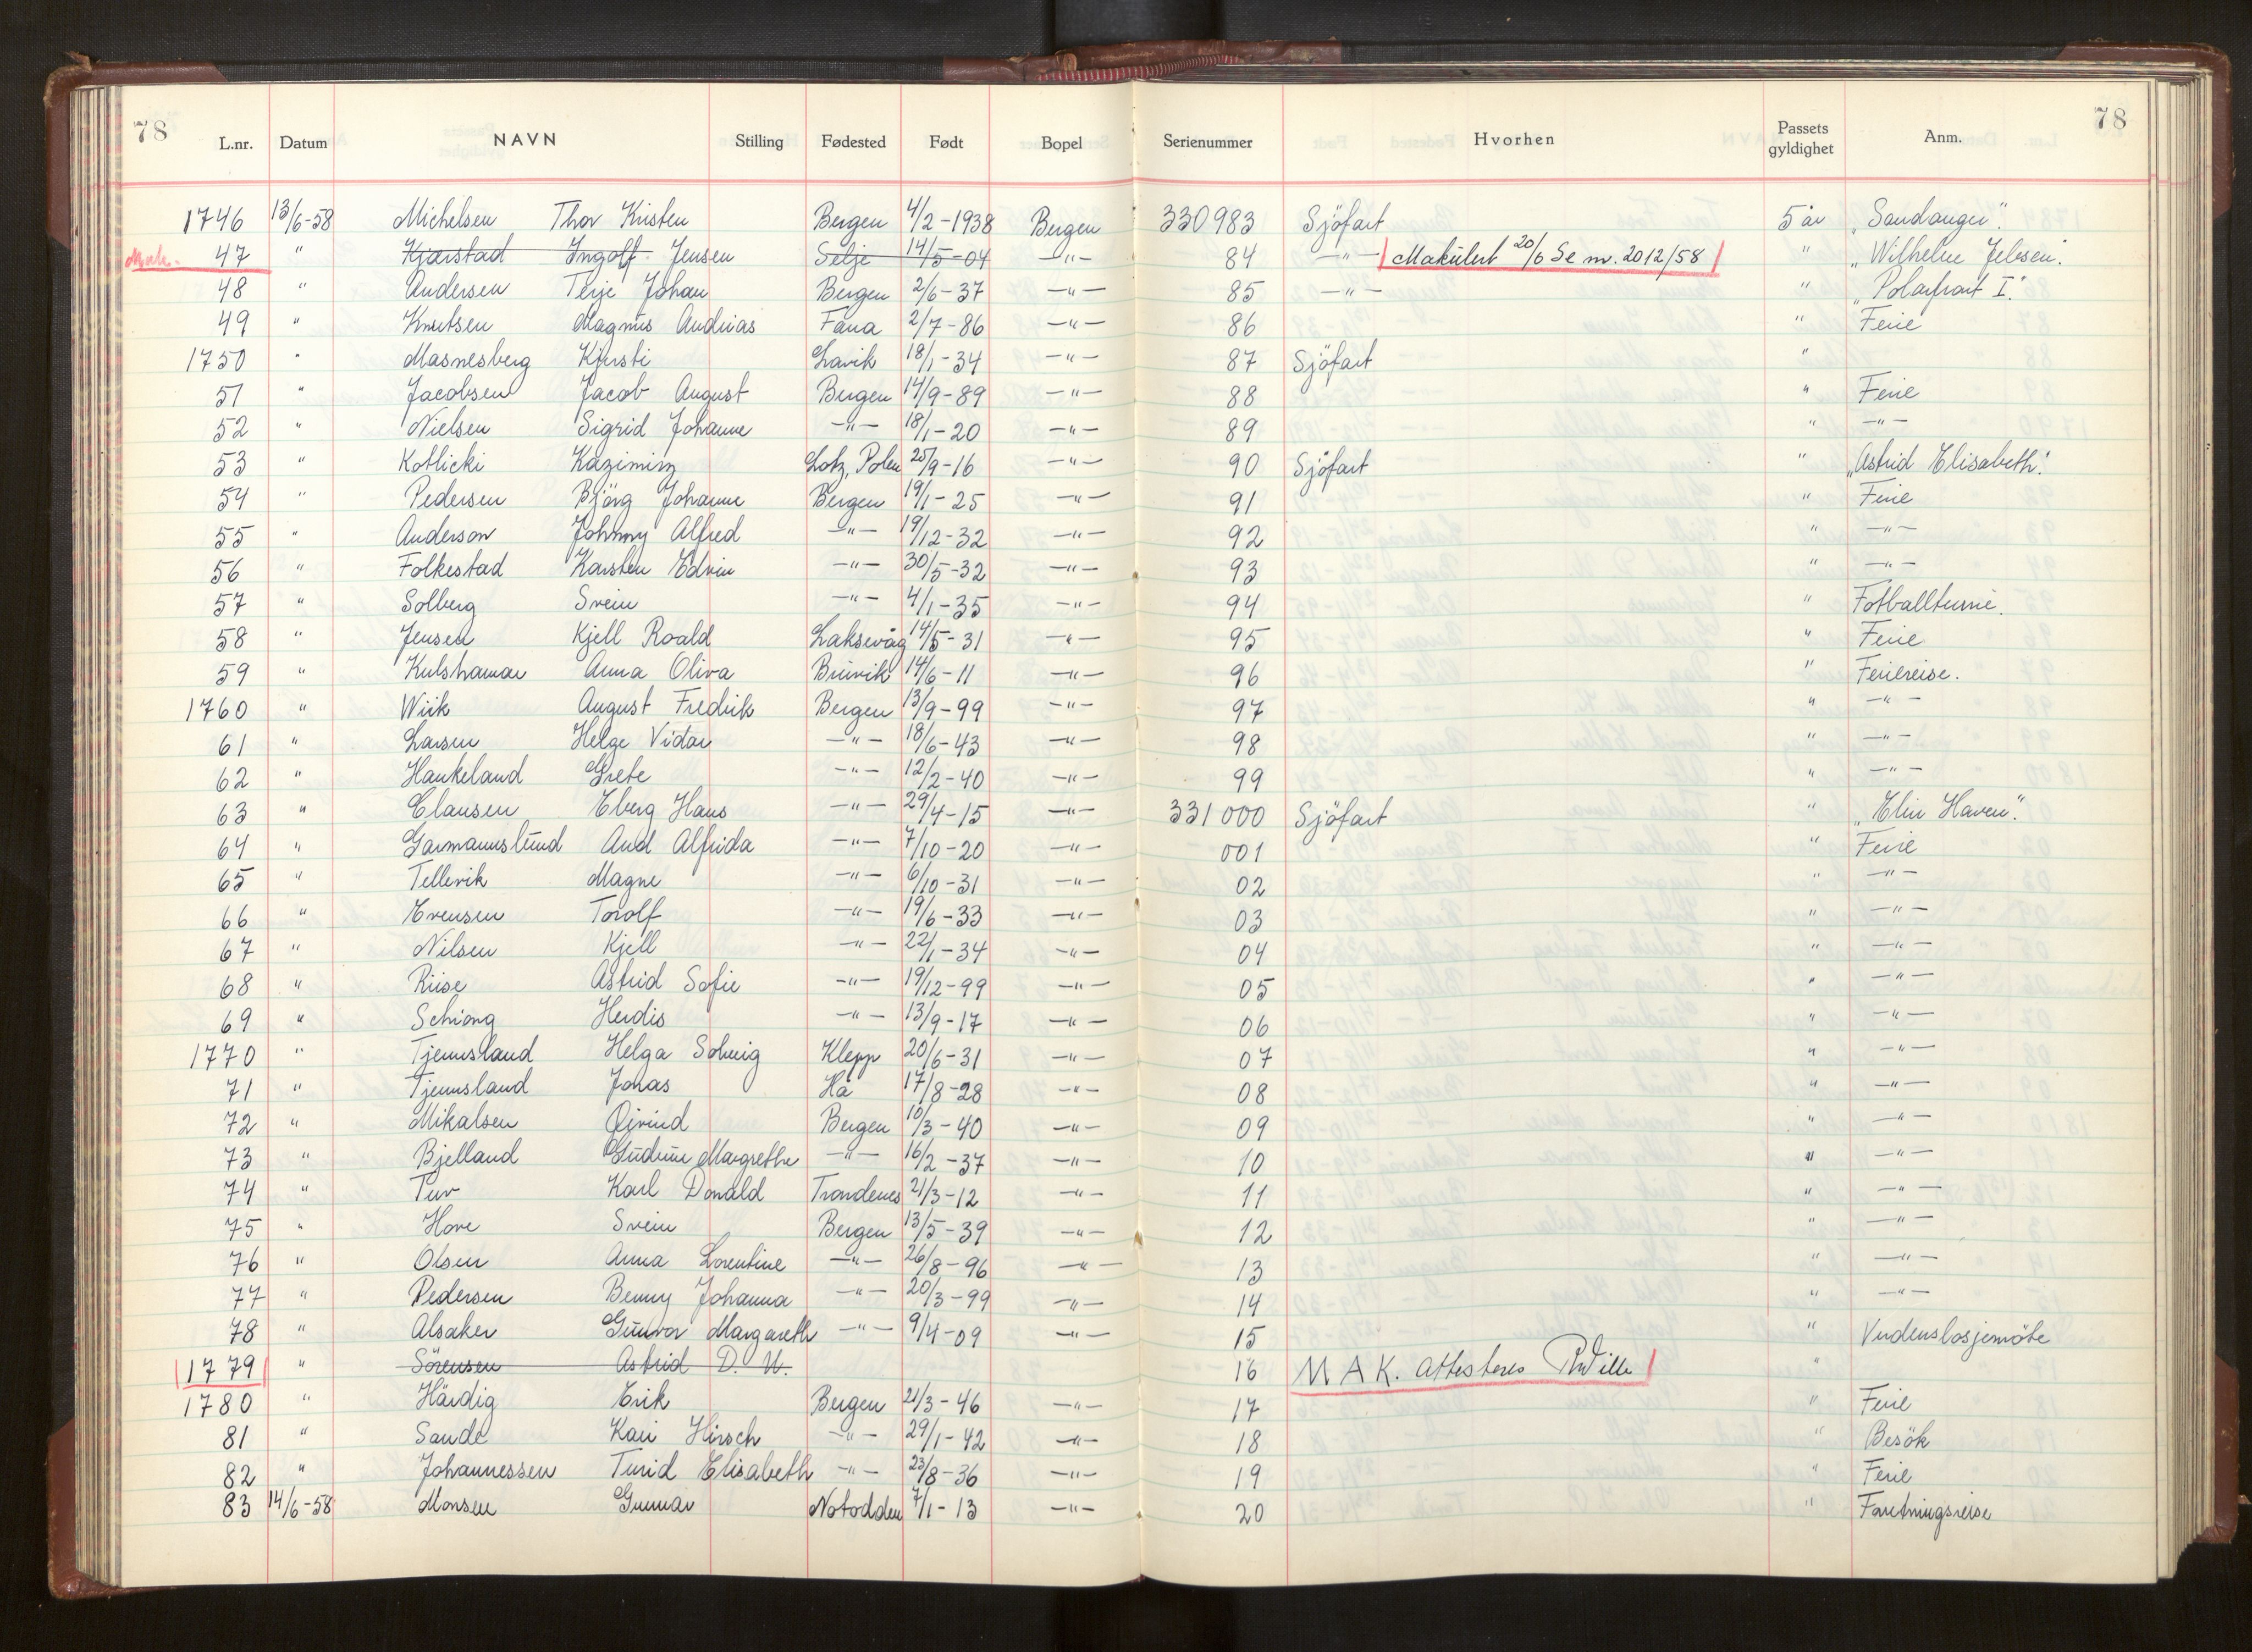 78 78
L.nr. Datum NAVN Stilling Fødested Født Bopel Serienummer Hvorhen Passets gyldighet Anm.
1746 13/6-58 Michelsen Thor Kristen Bergen 4/2-1938 Bergen 330983 Sjöfart 5 år "Sandanger".
Mak. 47 " Kjærstad Ingolf Jensen Selje 14/5-04 -"- 84 -"- Makulert 20/6 Se nr. 2012/58 " "Wilhelm Jebsen".
48 " Andersen Terje Johan Bergen 2/6-37 -"- 85 -"- " "Polarfront I".
49 " Knutsen Magnus Andreas Fana 2/7-86 -"- 86 " Ferie
1750 " Masnesberg Kjersti Lavik 18/1-34 -"- 87 Sjöfart "
51 " Jacobsen Jacob August Bergen 14/9-89 -"- 88 " Ferie
52 " Nielsen Sigrid Johanne -"- 18/1-20 -"- 89 " -"-
53 " Kotlicki Kazimirz Lotz, Polen 25/9-16 -"- 90 Sjöfart " "Astrid Elisabeth".
54 " Pedersen Bjørg Johanne Bergen 19/1-25 -"- 91 " Ferie
55 " Anderson Johnny Alfred -"- 19/12-32 -"- 92 " -"-
56 " Folkestad Karsten Edvin -"- 30/5-32 -"- 93 " -"-
57 " Solberg Svein -"- 4/1-35 -"- 94 " Fotballturne.
58 " Jensen Kjell Roald Laksevåg 14/5-31 -"- 95 " Ferie
59 " Kulshamar Anna Oliva Bruvik 14/6-11 -"- 96 " Feriereise.
1760 " Wiik August Fredrik Bergen 13/9-99 -"- 97 " -"-
61 " Larsen Helge Vidar -"- 18/6-43 -"- 98 " -"-
62 " Haukeland Grete -"- 12/2-40 -"- 99 " -"-
63 " Clausen Eberg Hans -"- 29/4-15 -"- 331000 Sjöfart " "Elin Haven".
64 " Garmannslund Aud Alfrida -"- 7/10-20 -"- 001 " Ferie
65 " Tellevik Magne -"- 6/10-31 -"- 02 " -"-
66 " Evensen Torolf -"- 19/6-33 -"- 03 " -"-
67 " Nilsen Kjell -"- 22/1-34 -"- 04 " -"-
68 " Riise Astrid Sofie -"- 19/12-99 -"- 05 " -"-
69 " Schiong Herdis -"- 13/9-17 -"- 06 " -"-
1770 " Tjemsland Helga Solveig Klepp 20/6-31 -"- 07 " -"-
71 " Tjemsland Jonas Hå 17/8-28 -"- 08 " -"-
72 " Mikalsen Øivind Bergen 10/3-40 -"- 09 " -"-
73 " Bjelland Gudrun Margrethe -"- 16/2-37 -"- 10 " -"-
74 " Tuv Karl Donald Trondenes 21/3-12 -"- 11 " -"-
75 " Hove Svein Bergen 13/5-39 -"- 12 " -"-
76 " Olsen Anna Lorentine -"- 26/8-96 -"- 13 " -"-
77 " Pedersen Benny Johanna -"- 20/3-99 -"- 14 " -"-
78 " Alsaker Gunvor Margareth -"- 9/4-09 -"- 15 "
1779 " Sörensen Astrid D. U. 16 MAK. attesteres "
1780 " Härdig Erik Bergen 21/3-46 -"- 17 " Ferie
81 " Sande Kari Hirsch -"- 29/1-42 -"- 18 " Besök
82 " Johannessen Turid Elisabeth -"- 23/8-36 -"- 19 " Ferie
83 14/6-58 Monsen Gunnar Notodden 7/1-13 -"- 20 " Foretningsreise